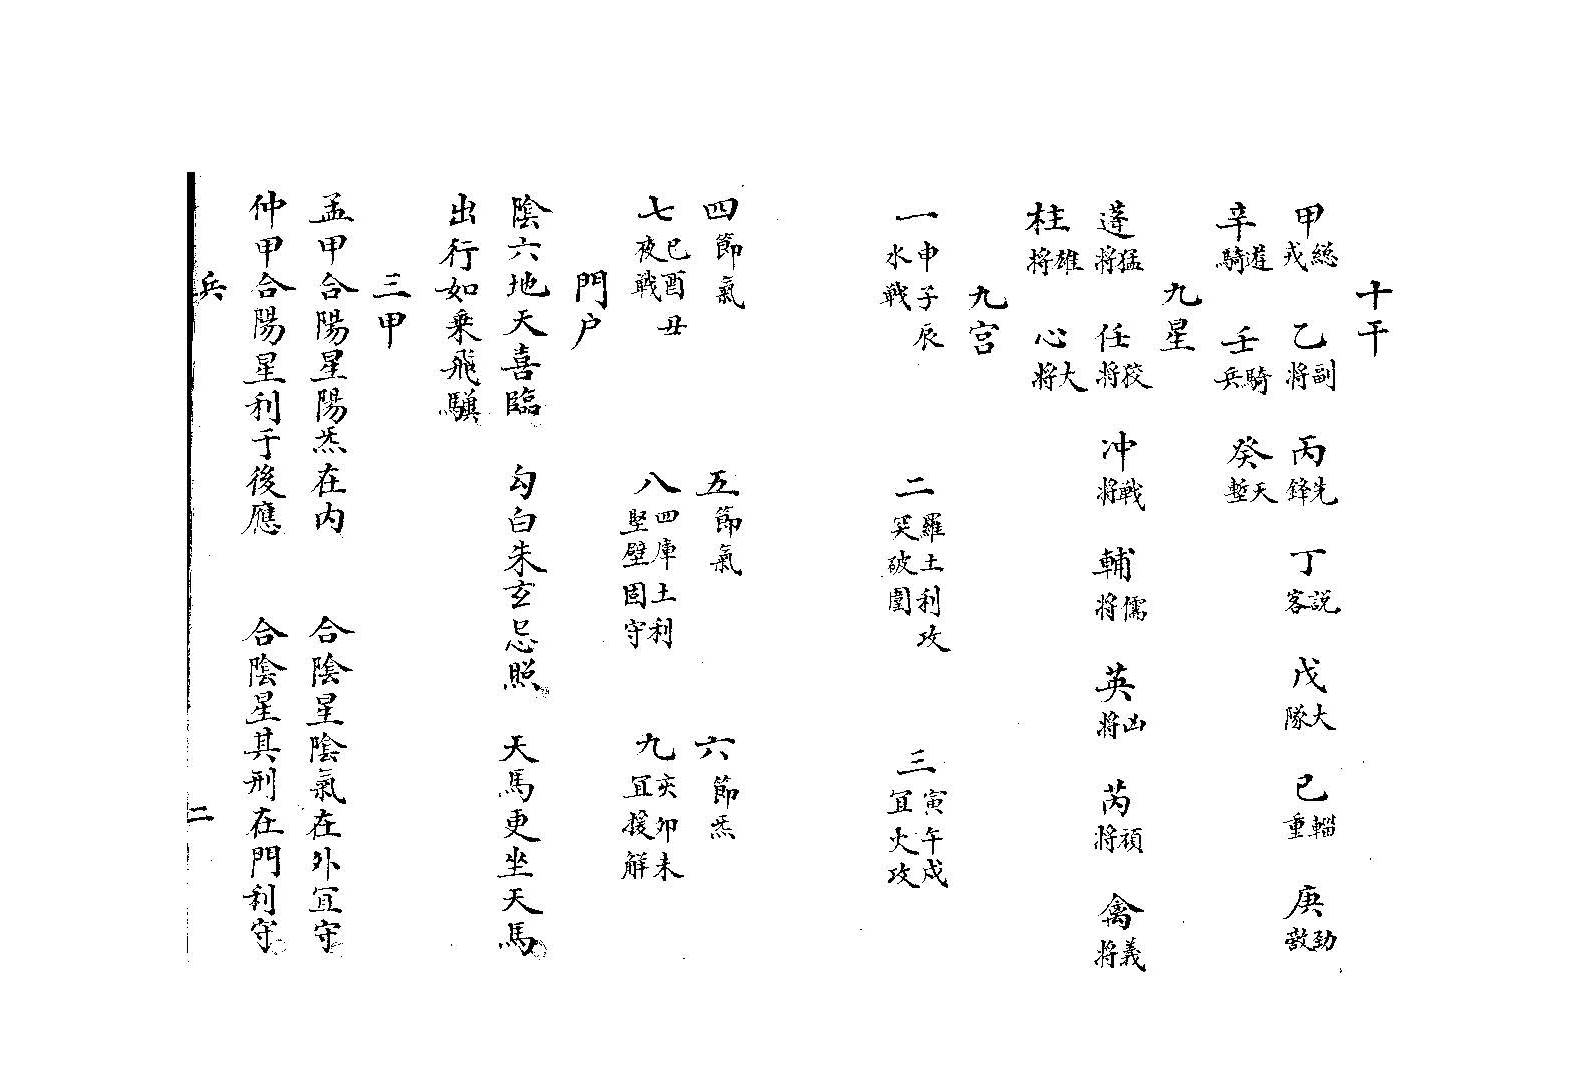 十干
甲總戎 乙副將 丙先鋒 丁說客 戊大隊 己輜重 庚勁敵
辛遊騎 壬騎兵 癸天塹
九星
蓬猛將 任狡將 冲戰將 輔儒將 英凶將 芮頑將 禽義將
柱雄將 心大將
九宮
一申子辰水戰 二羅土利攻突破圍 三寅午戌宜火攻
四節氣 五節氣 六節炁
七巳酉丑夜戰 八四庫土利堅壁固守 九亥卯未宜援解
門户
陰六地天喜臨 勾白朱玄忌照 天馬更坐天馬
出行如乘飛騏
三甲
孟甲合陽星陽炁在内 合陰星陰氣在外宜守
仲甲合陽星利于後應 合陰星其刑在門利守
兵 二